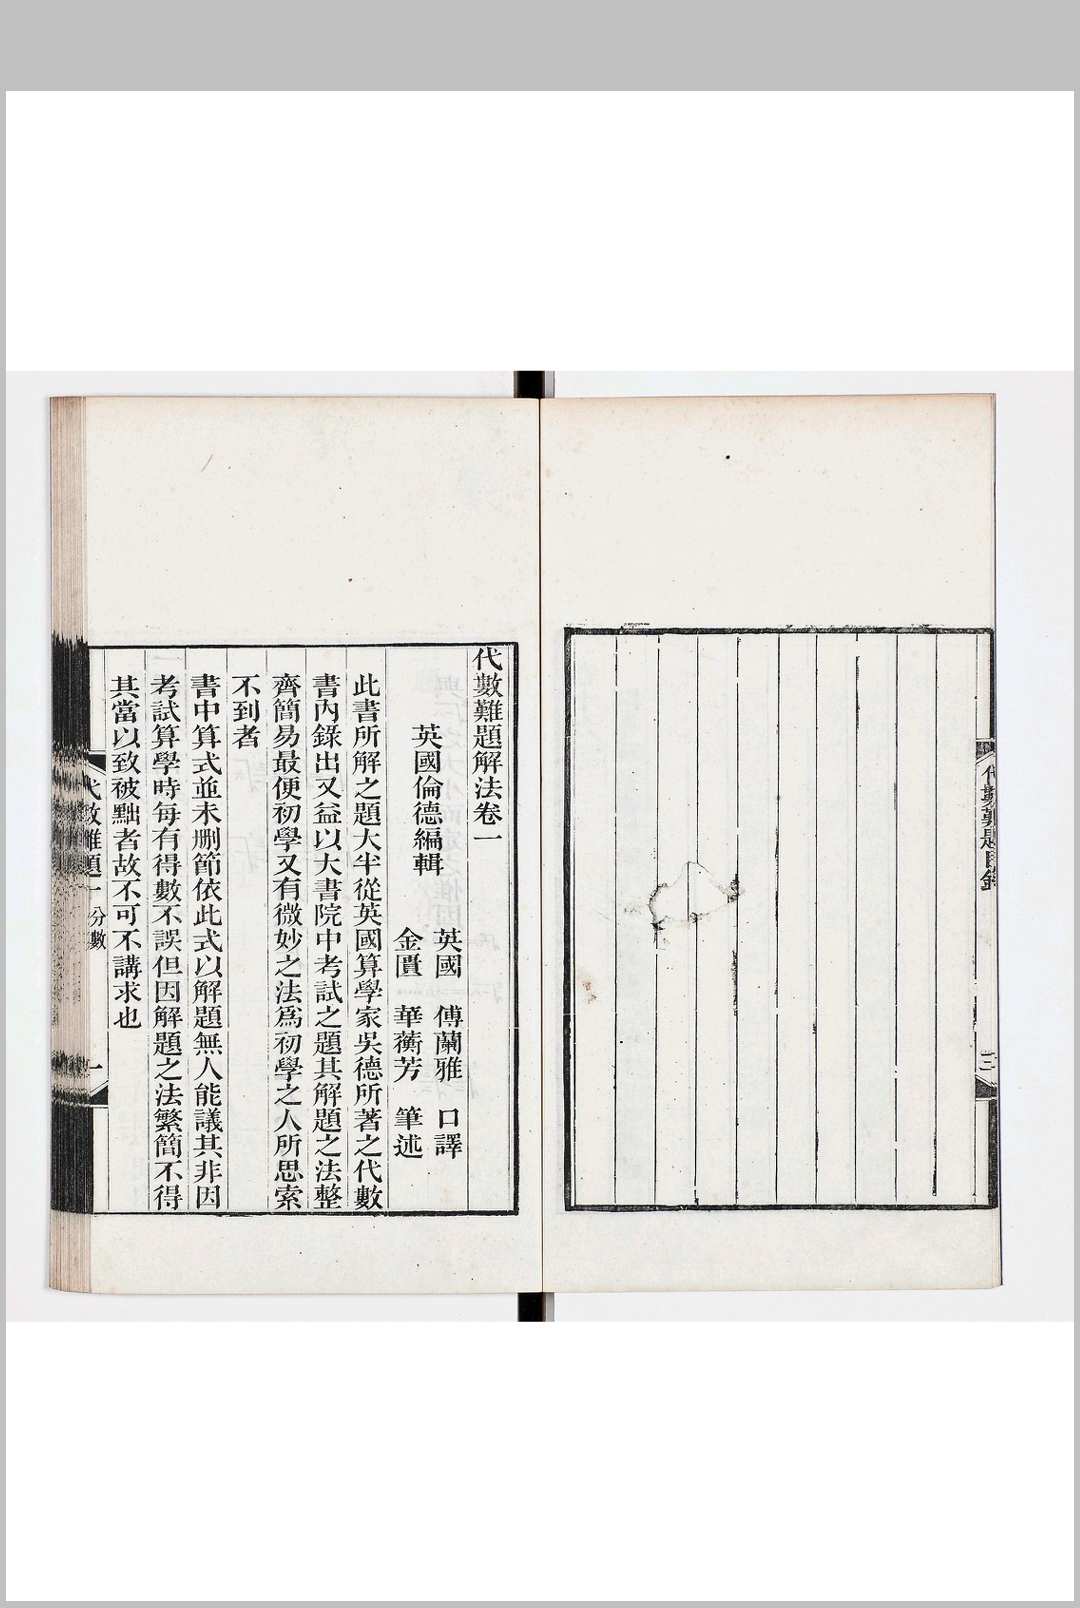 代數難題目錄
三
代數難題解法卷一
英國倫德編輯
英國 傅蘭雅 口譯
金匱 華蘅芳 筆述
此書所解之題大半從英國算學家吳德所著之代數
書內錄出又益以大書院中考試之題其解題之法整
齊簡易最便初學又有微妙之法爲初學之人所思索
不到者
書中算式並未刪節依此式以解題無人能議其非因
考試算學時每有得數不誤但因解題之法繁簡不得
其當以致被黜者故不可不講求也
代數難題一 分數
一